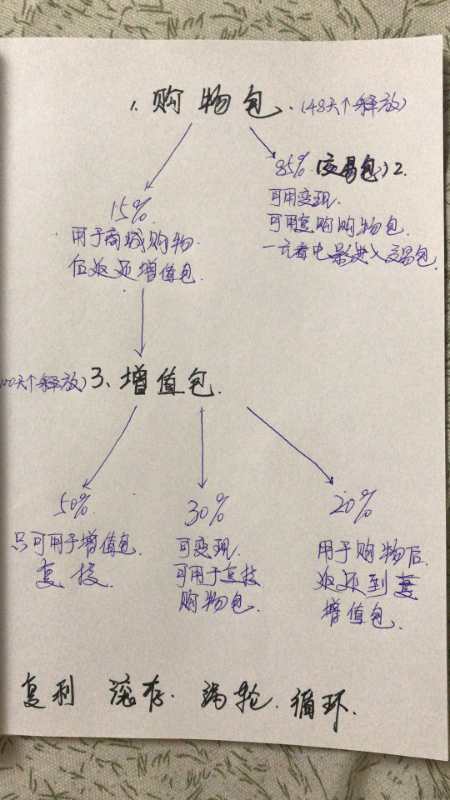 1. 购物包. (48天个释放)
85% (交易包) 2.
可用变现.
可用复购购物包.
一元看电影进入交易包.
15%
用于商城购物.
返还增值包.
00天个释放) 3、增值包.
50%
只可用于增值包
复投.
30%
可变现.
可用于复投
购物包.
20%
用于购物后
返还到
增值包.
复利 滚存. 涡轮. 循环.